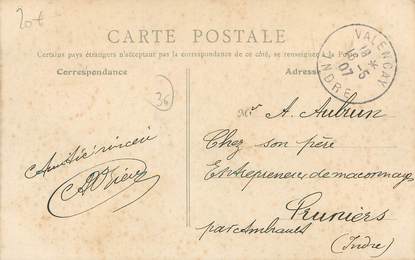 20 €
CARTE POSTALE
Certains pays étrangers n'acceptant pas la correspondance de ce côté, se renseigner à la Poste
Correspondance
Adresse
VALENÇAY
18 -5
07
INDRE
36
Mr A. Aubrun
Chez son père
Entrepreneur de maconnage
Pruniers
par Ambrault
(Indre)
Amitié sincère